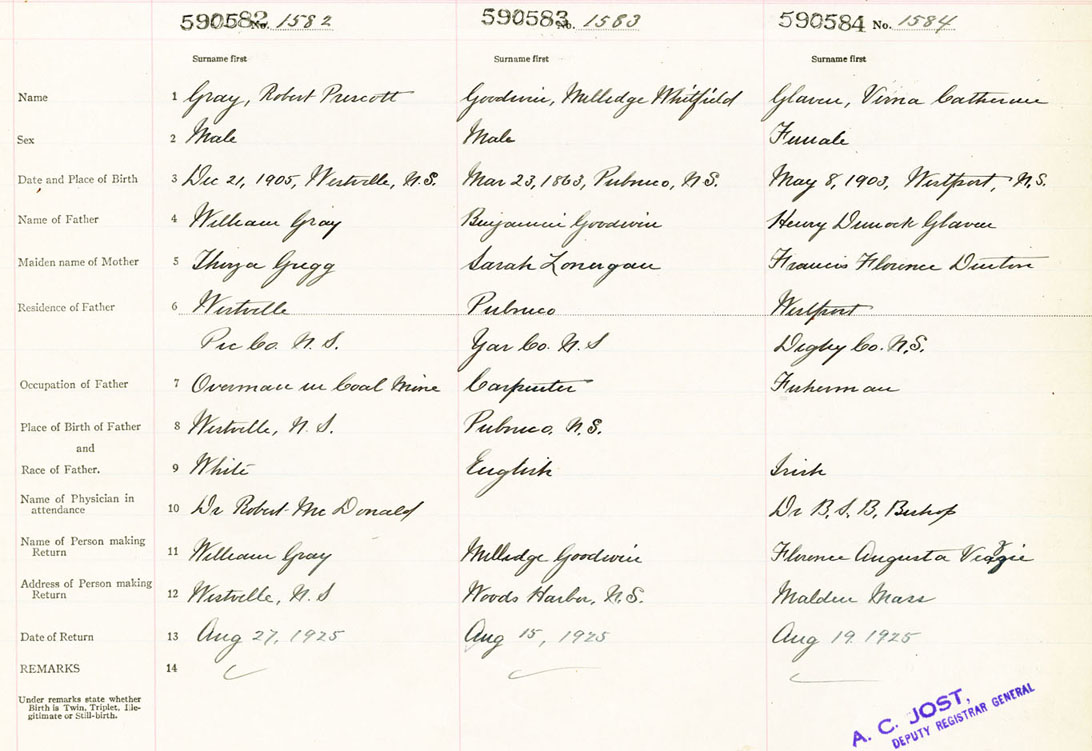 590582 No. 1582 590583 No. 1583 590584 No. 1584
Surname first Surname first Surname first
Name 1 Gray, Robert Prescott Goodwin, Milledge Whitfield Glaven, Verna Catherine
Sex 2 Male Male Female
Date and Place of Birth 3 Dec 21, 1905, Westville, N.S. Mar 23, 1863, Pubnico, N.S. May 8, 1903, Westport, N.S.
Name of Father 4 William Gray Benjamin Goodwin Henry Glaven
Maiden name of Mother 5 Thirza Gregg Sarah Lonergan Francis Florence Denton
Residence of Father 6 Westville Pubnico Westport
Pic Co. N.S. Yar Co. N.S Digby Co. N.S.
Occupation of Father 7 Overman in Coal Mine Carpenter Fisherman
Place of Birth of Father 8 Westville, N.S. Pubnico, N.S.
and
Race of Father. 9 White English Irish
Name of Physician in
attendance 10 Dr Robert McDonald Dr B. S. B. Bishop
Name of Person making
Return 11 William Gray Milledge Goodwin Florence Augusta Veazie
Address of Person making
Return 12 Westville, N.S Woods Harbor, N.S. Malden Mass
Date of Return 13 Aug 27, 1925 Aug 15, 1925 Aug 19. 1925
REMARKS 14
Under remarks state whether
Birth is Twin, Triplet, Ille-
gitimate or Still-birth.
A. C. JOST,
DEPUTY REGISTRAR GENERAL